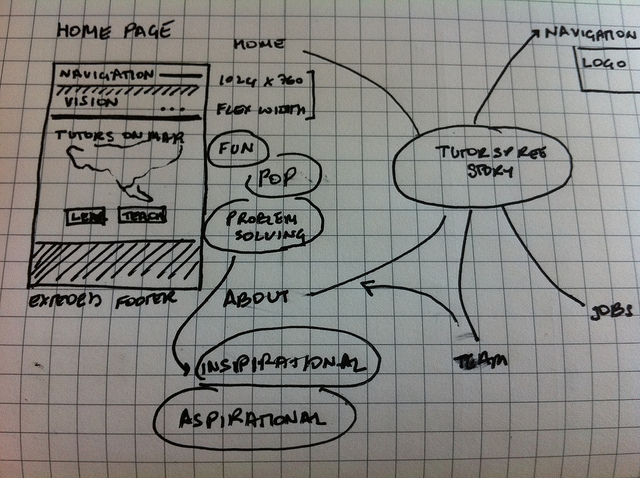 HOME PAGE
NAVIGATION
VISION ...
TUTORS ON MAP
LEARN TEACH
EXTENDED FOOTER
HOME
1024 x 760
FLEX WIDTH
FUN
POP
PROBLEM
SOLVING
ABOUT
INSIPIRATIONAL
ASPIRATIONAL
NAVIGATION
LOGO
TUTORSPREE
STORY
TEAM
JOBS